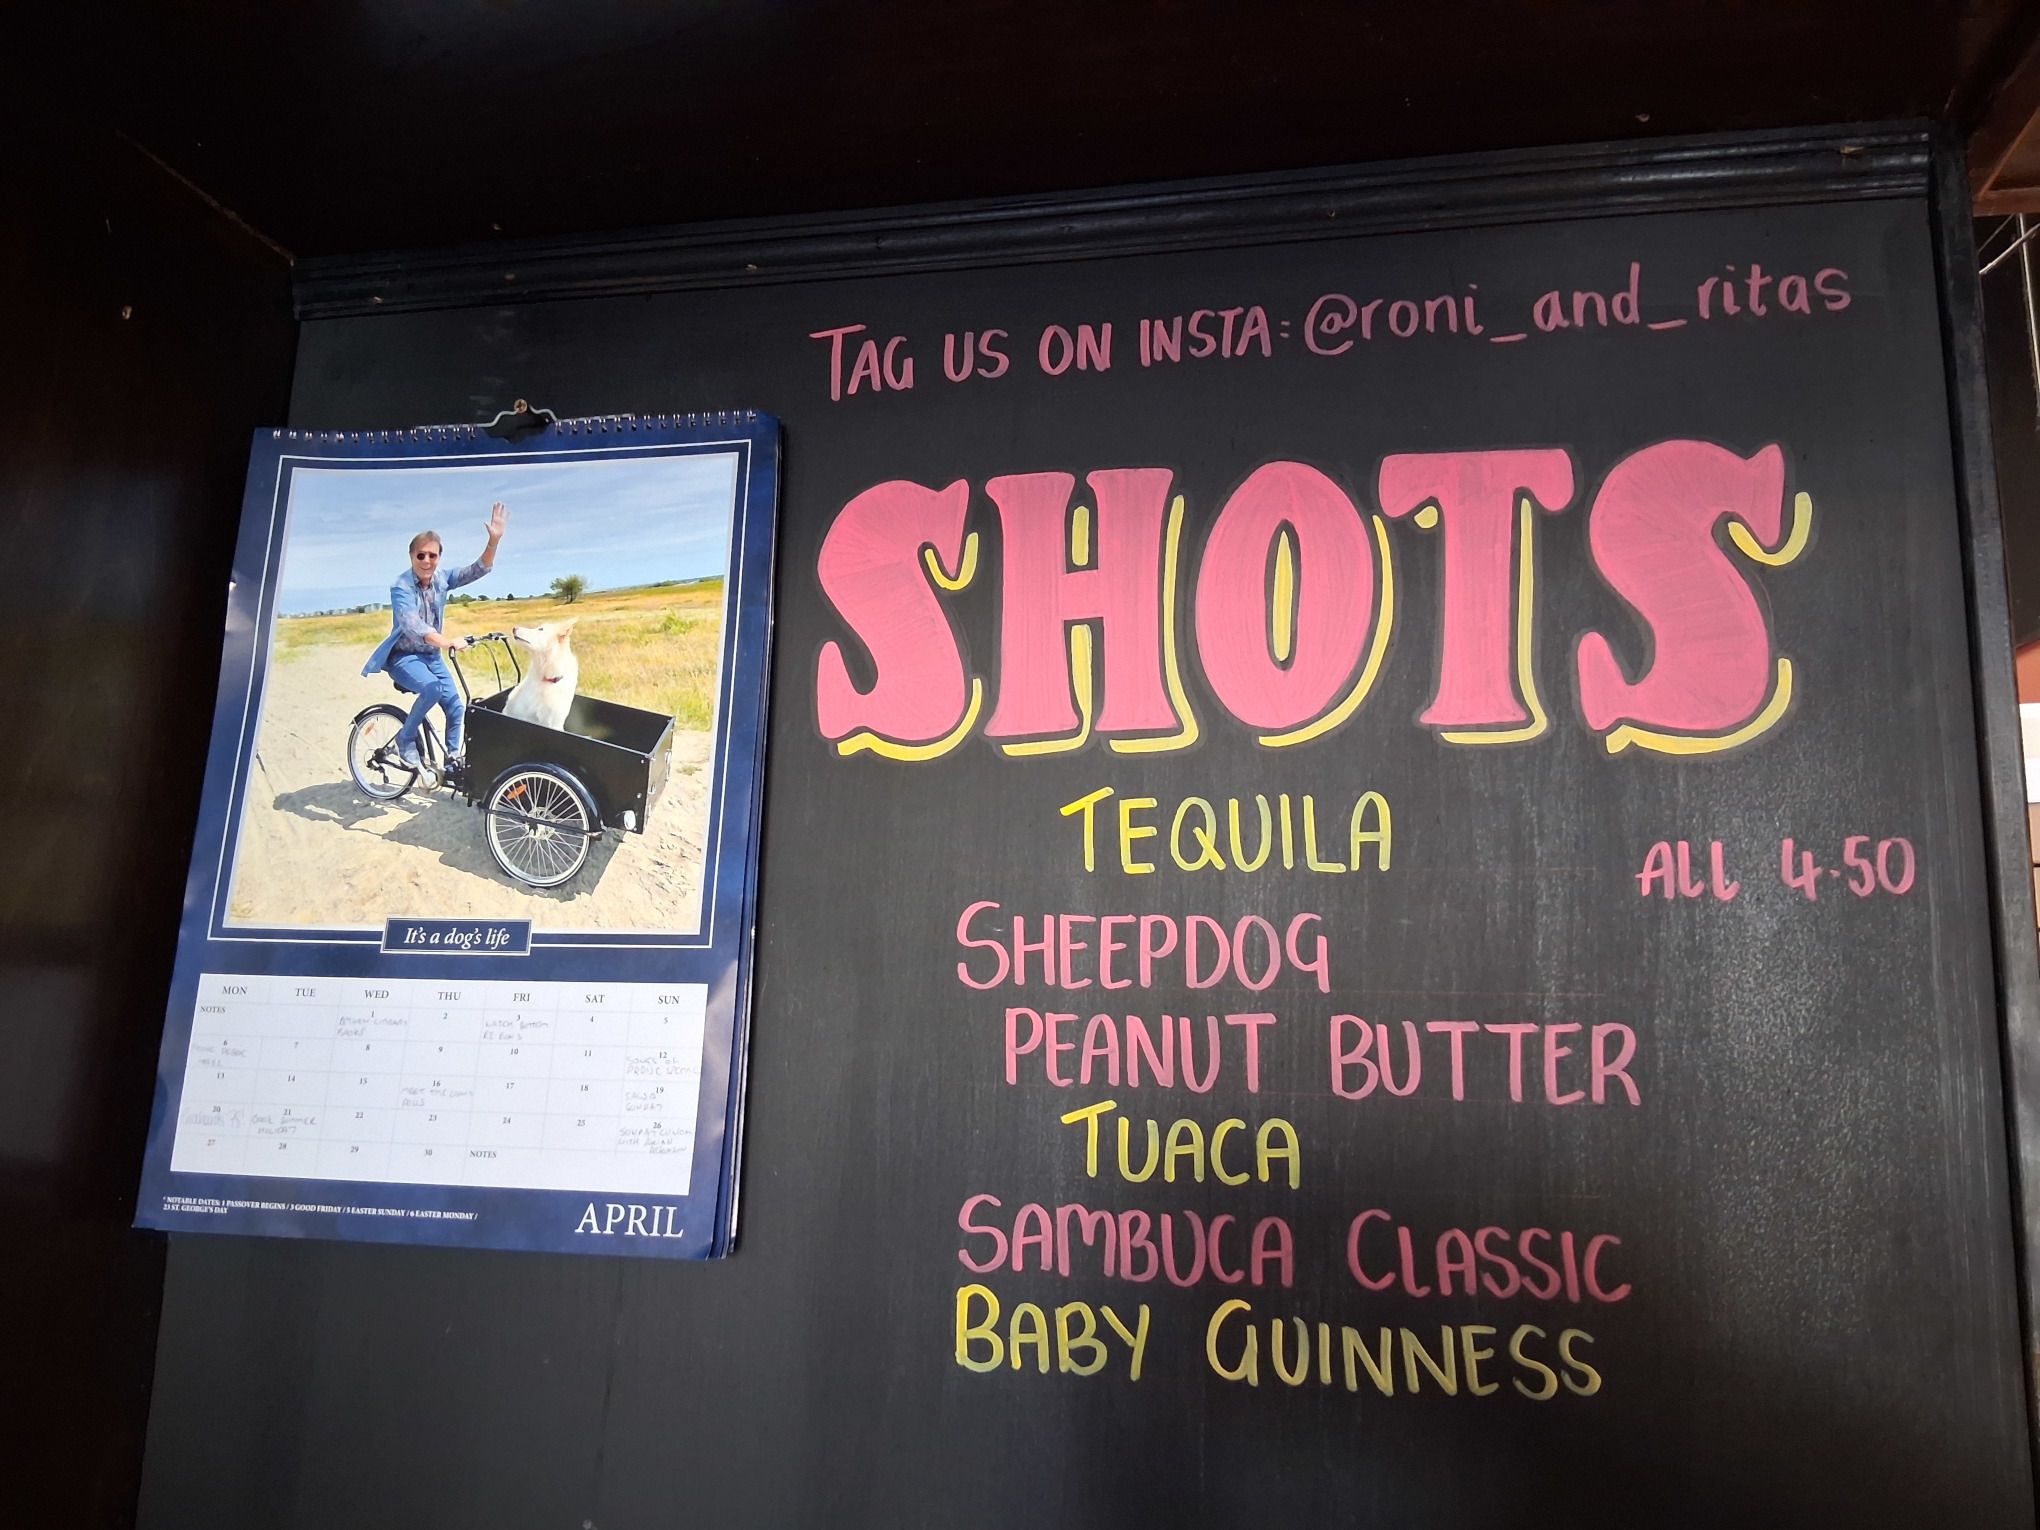 TAG US ON INSTA: @roni_and_ritas
SHOTS
TEQUILA
ALL 4.50
SHEEPDOG
PEANUT BUTTER
TUACA
SAMBUCA CLASSIC
BABY GUINNESS
It's a dog's life
MON TUE WED THU FRI SAT SUN
NOTES 1 2 3 4 5
6 7 8 9 10 11 12
SONGS OF
PRAISE SPECIAL
13 14 15 16 17 18 19
MEET THE
SUNDAY
20 21 22 23 24 25 26
BOOK SUMMER
HOLIDAY
SUNDAY LUNCH
WITH
27 28 29 30 NOTES
* NOTABLE DATES: 1 PASSOVER BEGINS / 3 GOOD FRIDAY / 5 EASTER SUNDAY / 6 EASTER MONDAY /
23 ST. GEORGE'S DAY
APRIL